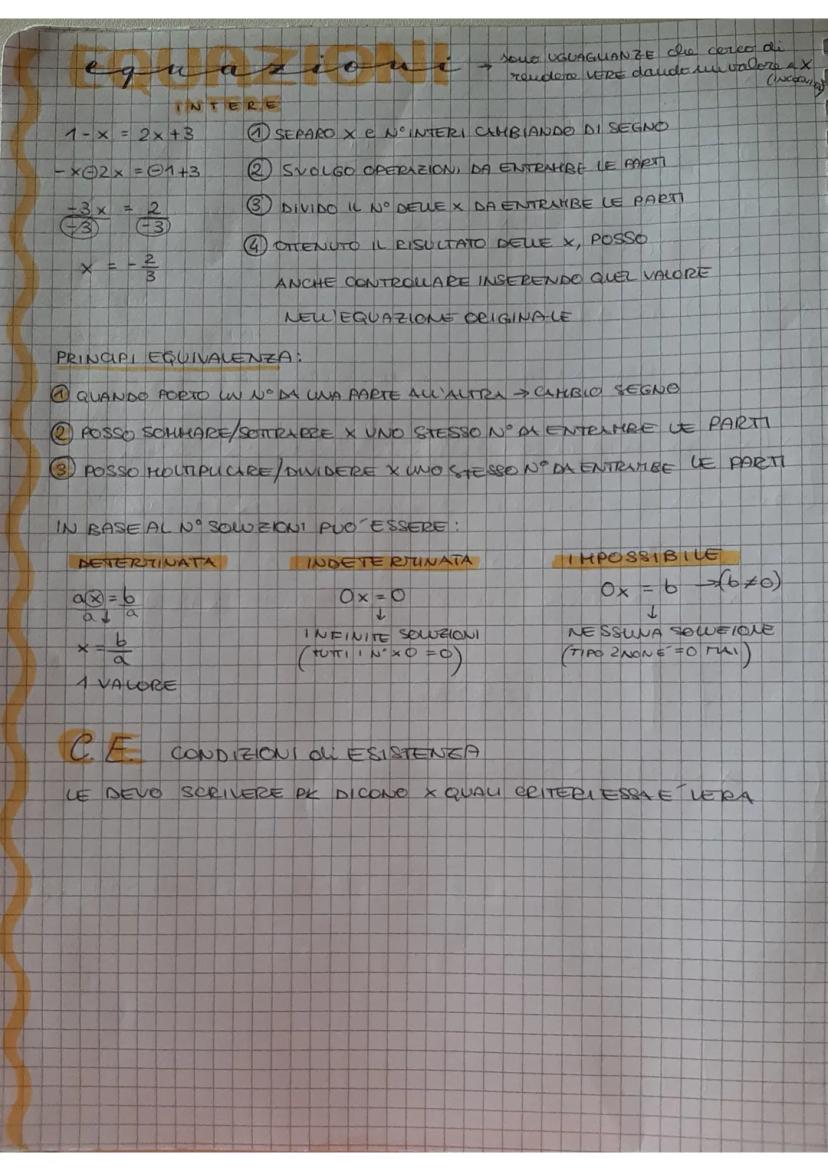 EQUAZIONI
equazioni → sono UGUAGLIANZE che cerco di
rendere VERE dando un valore a X
(incognita)
INTERE
1 - x = 2x + 3
① SEPARO X e N° INTERI CAMBIANDO DI SEGNO
-x⊖2x = ⊖1+3
② SVOLGO OPERAZIONI DA ENTRAMBE LE PARTI
-3x/-3 = 2/-3
③ DIVIDO IL N° DELLE X DA ENTRAMBE LE PARTI
x = -2/3
④ OTTENUTO IL RISULTATO DELLE X, POSSO
ANCHE CONTROLLARE INSERENDO QUEL VALORE
NELL'EQUAZIONE ORIGINALE
PRINCIPI EQUIVALENZA:
① QUANDO PORTO UN N° DA UNA PARTE ALL'ALTRA → CAMBIO SEGNO
② POSSO SOMMARE/SOTTRARRE X UNO STESSO N° DA ENTRAMBE LE PARTI
③ POSSO MOLTIPLICARE/DIVIDERE X UNO STESSO N° DA ENTRAMBE LE PARTI
IN BASE AL N° SOLUZIONI PUO' ESSERE:
DETERMINATA INDETERMINATA IMPOSSIBILE
aⓧ/a = b/a
↓
x = b/a
1 VALORE
0x = 0
↓
INFINITE SOLUZIONI
(TUTTI I N° x 0 = 0)
0x = b → (b≠0)
↓
NESSUNA SOLUZIONE
(TIPO 2 NON E' = 0 MAI)
C.E. CONDIZIONI di ESISTENZA
LE DEVO SCRIVERE PK DICONO X QUALI CRITERI ESSA E' VERA